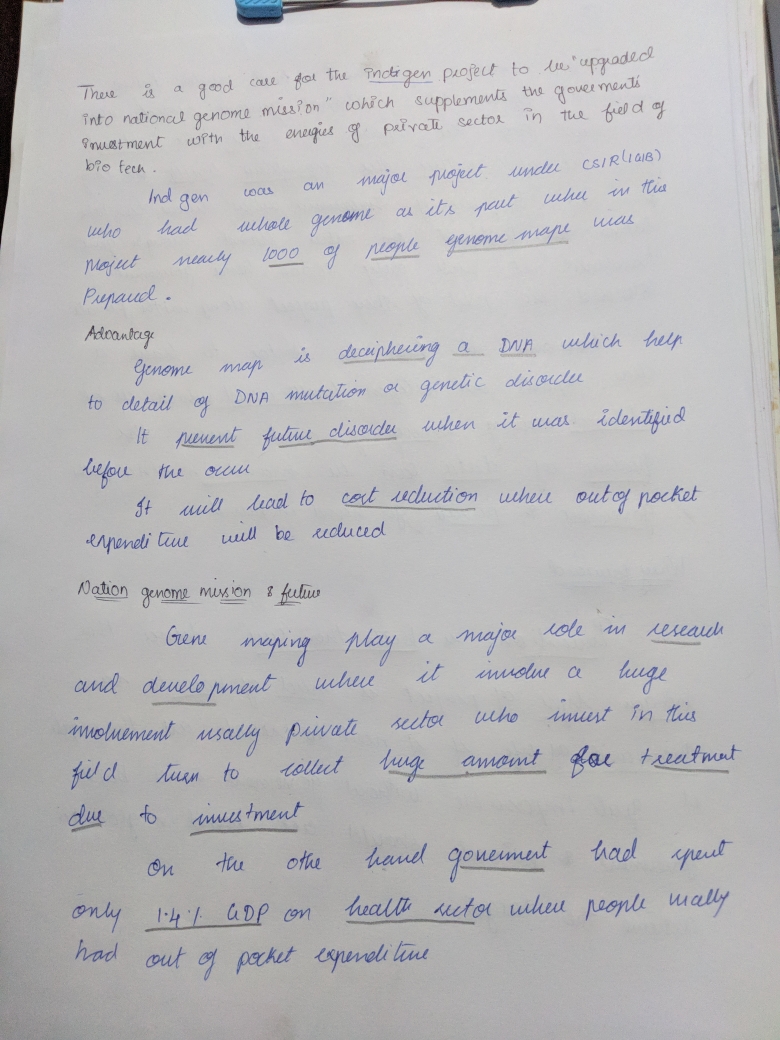 There is a good case for the indigen project to be "upgraded
into national genome mission" which supplements the goverments
investment with the energies of private sector in the field of
bio tech.
Ind gen was an major project under CSIR (IGIB)
who had whole genome as its part wher in this
project nearly 1000 of people genome mape was
Prepared.
Advantage
Genome map is deciphering a DNA which help
to detail of DNA mutation or genetic disorder
It prevent future disorder when it was identified
before the occur
It will lead to cost reduction where out of pocket
expenditure will be reduced
Nation genome mission & future
Gene maping play a major role in research
and development where it involve a huge
involvement usally private sector who invest in this
field turn to collect huge amount for treatment
due to investment
On the othe hand goverment had spent
only 1.4% GDP on health sector where people usally
had out of pocket expenditure